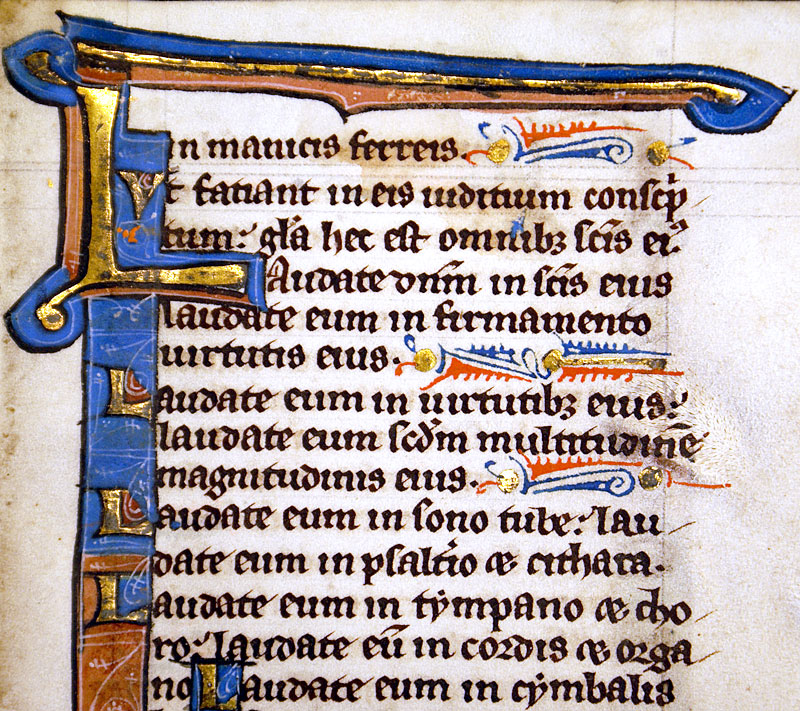 in manicis ferreis.
Ut fatiant in eis iuditium conscp̄
tum: gl̃a hec est omnibꝫ scĩs eiꝰ.
Laudate dñm in scĩs eius
laudate eum in firmamento
uirtutis eius.
Laudate eum in uirtutibꝫ eius:
laudate eum scd̃m multitudinẽ
magnitudinis eius.
Laudate eum in sono tube: lau
date eum in psaltĩo & cithara.
Laudate eum in tympano & cho
ro: laudate eũ in cordis & orga
no Laudate eum in cymbalis